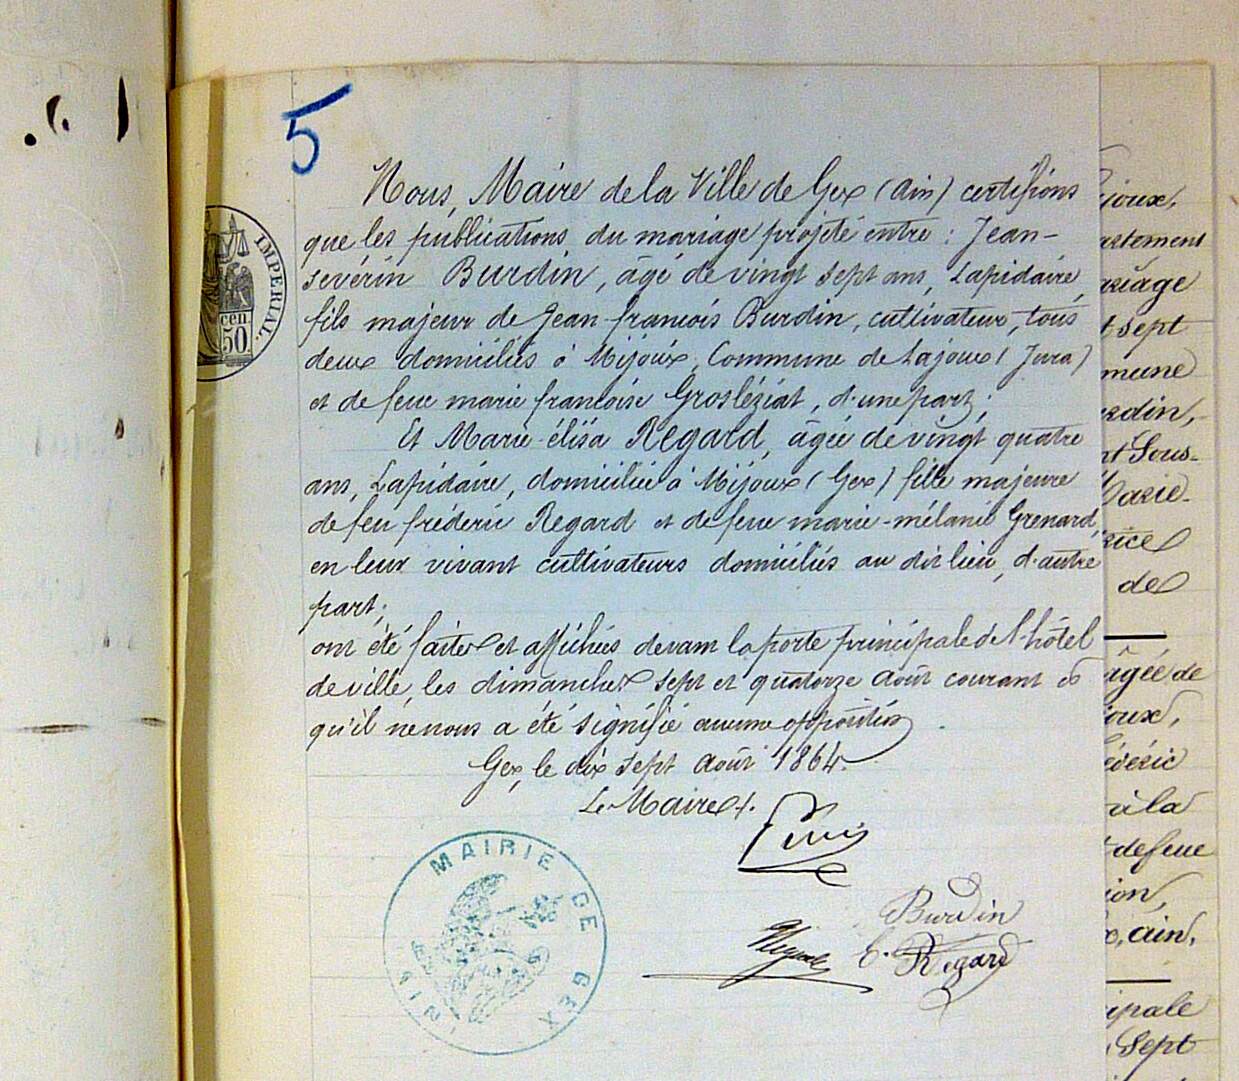 5
Nous, Maire de la Ville de Gex (Ain) certifions
que les publications du mariage projeté entre : Jean-
sevérin Burdin, âgé de vingt sept ans, Lapidaire,
fils majeur de Jean-françois Burdin, cultivateur, tous
deux domiciliés à Mijoux, Commune de Lajoux (Jura)
et de feue marie françoise Grosléziat, d'une part;
Et Marie-élisa Regard, âgée de vingt quatre
ans, Lapidaire, domiciliée à Mijoux (Gex) fille majeure
de feu fréderic Regard et de feue marie-mélanie Grenard,
en leur vivant cultivateurs domiciliés au dit lieu, d'autre
part;
ont été faites et affichées devant la porte principale de l'hôtel
de ville, les dimanches sept et quatorze août courant et
qu'il ne nous a été signifié aucune opposition
Gex, le dix sept août 1864.
Le Maire
Burdin
Regard
IMPERIAL.
50 cen
MAIRIE DE GEX
AIN
ijoux,
artement
ariage
t sept
mune
urdin,
nt Sous-
Marie-
de
âgée de
joux,
édéric
à la
t de feue
ion,
, ain,
cipale
Sept